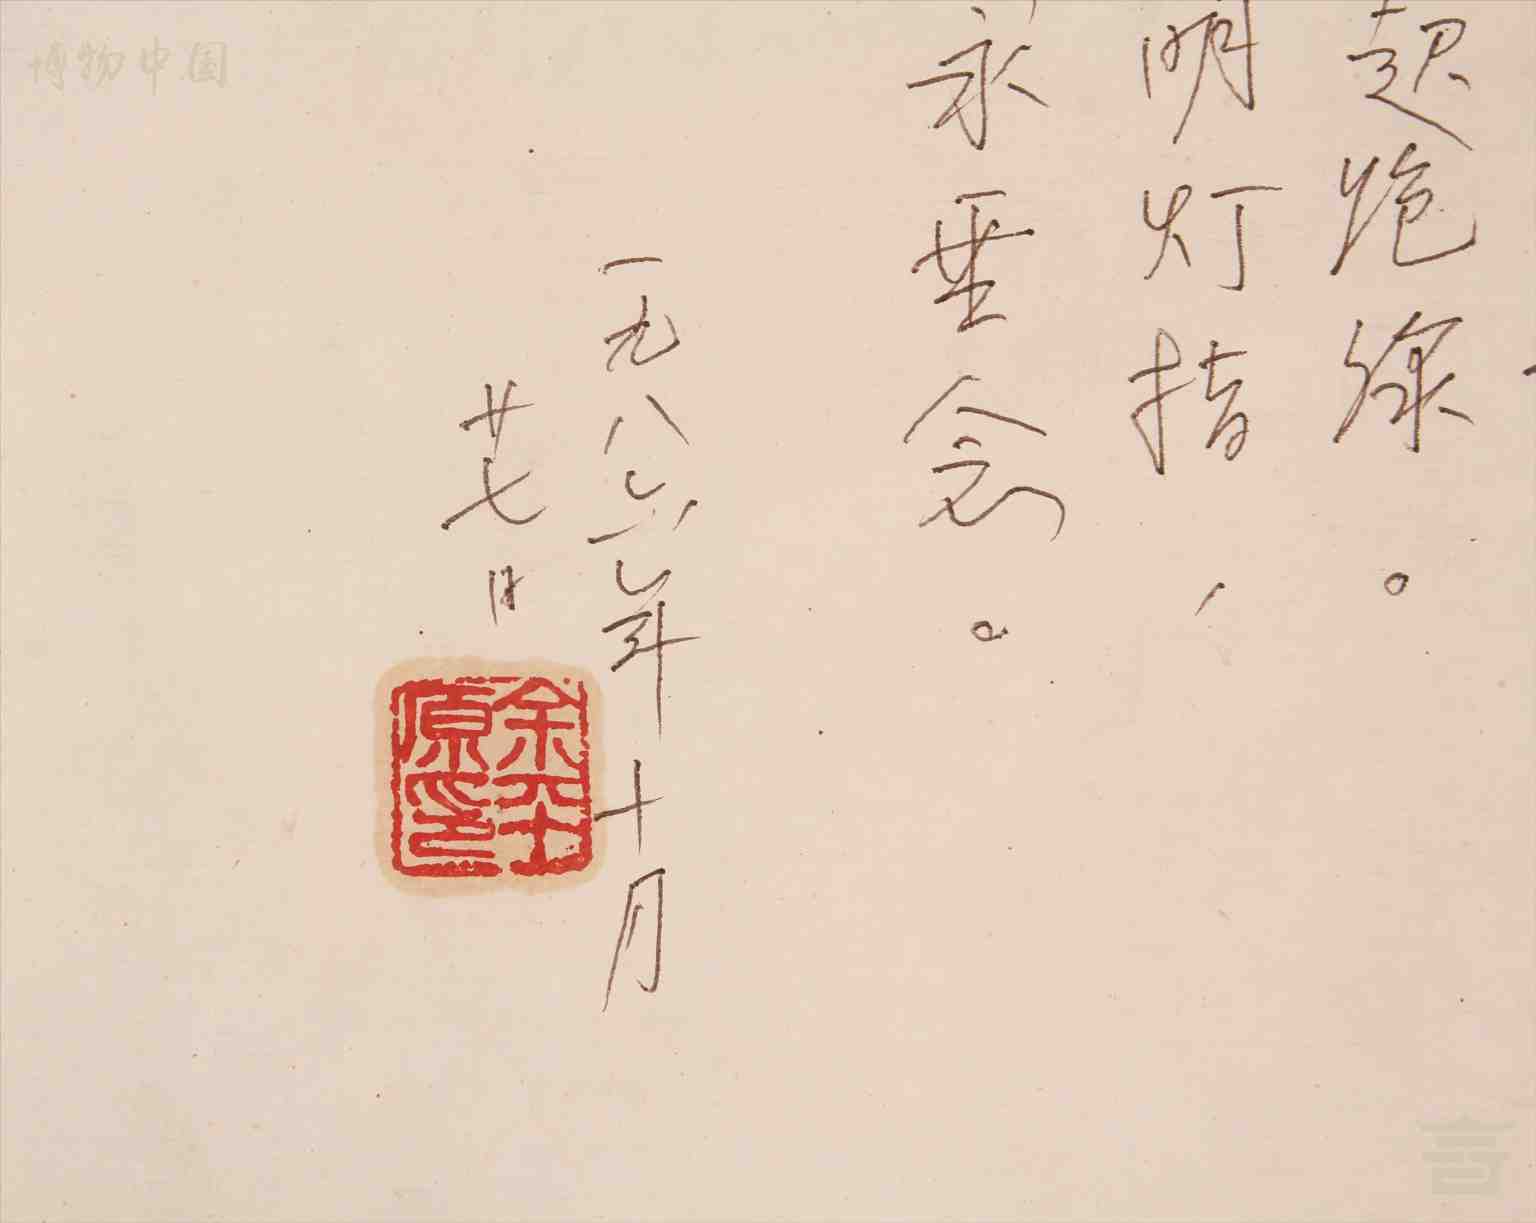 博物中国
起跑線。
明灯指、
永垂念。
一九八六年十月
廿七日
余
原印